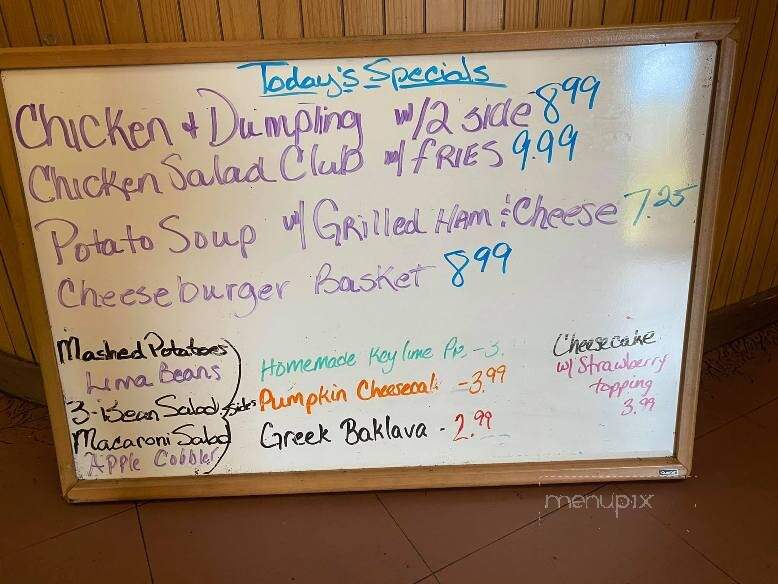 Today's Specials
Chicken & Dumpling w/2 side 8 99
Chicken Salad Club w/ FRIES 9.99
Potato Soup w/ GRilled HAM & Cheese 7.25
Cheeseburger Basket 8 99
Mashed Potatoes
Lima Beans
3-Bean Salad
Macaroni Salad
Apple Cobbler
Sides
Homemade Key lime Pie -3.
Pumpkin Cheesecak -3.99
Greek Baklava - 2.99
Cheesecake
w/ Strawberry
topping
3.99
menupix